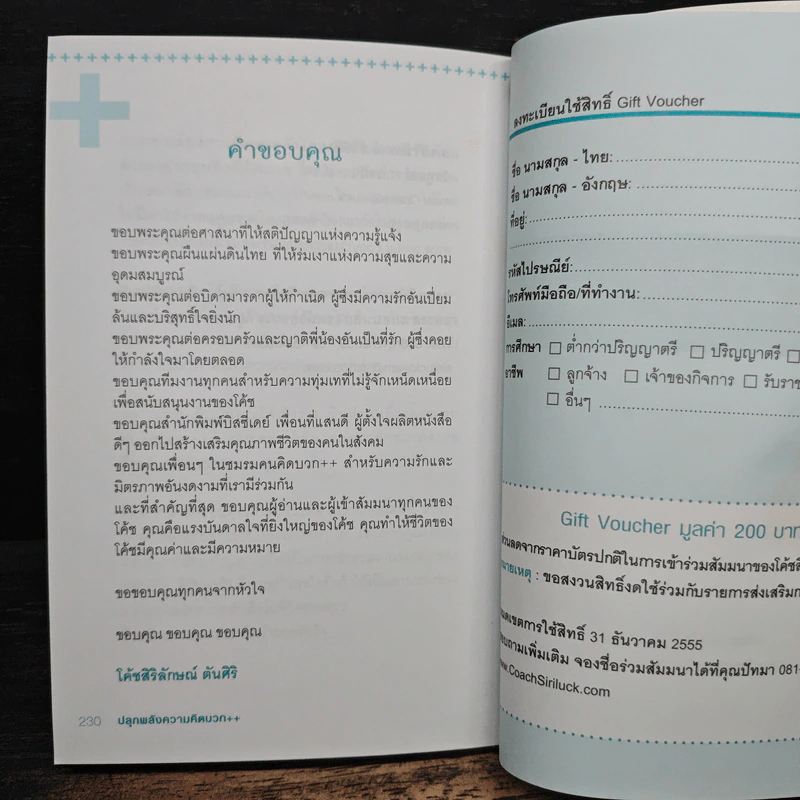 คำขอบคุณ
ขอบพระคุณต่อศาสนาที่ให้สติปัญญาแห่งความรู้แจ้ง
ขอบพระคุณผืนแผ่นดินไทย ที่ให้ร่มเงาแห่งความสุขและความ
อุดมสมบูรณ์
ขอบพระคุณต่อบิดามารดาผู้ให้กำเนิด ผู้ซึ่งมีความรักอันเปี่ยม
ล้นและบริสุทธิ์ใจยิ่งนัก
ขอบพระคุณต่อครอบครัวและญาติพี่น้องอันเป็นที่รัก ผู้ซึ่งคอย
ให้กำลังใจมาโดยตลอด
ขอบคุณทีมงานทุกคนสำหรับความทุ่มเทที่ไม่รู้จักเหน็ดเหนื่อย
เพื่อสนับสนุนงานของโค้ช
ขอบคุณสำนักพิมพ์บิสซี่เดย์ เพื่อนที่แสนดี ผู้ตั้งใจผลิตหนังสือ
ดีๆ ออกไปสร้างเสริมคุณภาพชีวิตของคนในสังคม
ขอบคุณเพื่อนๆ ในชมรมคนคิดบวก++ สำหรับความรักและ
มิตรภาพอันงดงามที่เรามีร่วมกัน
และที่สำคัญที่สุด ขอบคุณผู้อ่านและผู้เข้าสัมมนาทุกคนของ
โค้ช คุณคือแรงบันดาลใจที่ยิ่งใหญ่ของโค้ช คุณทำให้ชีวิตของ
โค้ชมีคุณค่าและมีความหมาย
ขอขอบคุณทุกคนจากหัวใจ
ขอบคุณ ขอบคุณ ขอบคุณ
โค้ชสิริลักษณ์ ตันศิริ
230 ปลุกพลังความคิดบวก++
ลงทะเบียนใช้สิทธิ์ Gift Voucher
ชื่อ นามสกุล - ไทย:
ชื่อ นามสกุล - อังกฤษ:
ที่อยู่:
รหัสไปรษณีย์:
โทรศัพท์มือถือ/ที่ทำงาน:
อีเมล:
การศึกษา ต่ำกว่าปริญญาตรี ปริญญาตรี
อาชีพ ลูกจ้าง เจ้าของกิจการ รับราช
อื่นๆ
Gift Voucher มูลค่า 200 บาท
ส่วนลดจากราคาบัตรปกติในการเข้าร่วมสัมมนาของโค้ชสิ
หมายเหตุ : ขอสงวนสิทธิ์งดใช้ร่วมกับรายการส่งเสริมก
หมดเขตการใช้สิทธิ์ 31 ธันวาคม 2555
สอบถามเพิ่มเติม จองชื่อร่วมสัมมนาได้ที่คุณปัทมา 081-
www.CoachSiriluck.com